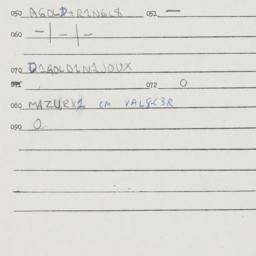 050 AGOLD+R1N6L8 051 —
060 —|—|—
070 D1GOLD1N1JOUX
071 072 0
080 MAZURK1 CM VAL8C3R
090 0